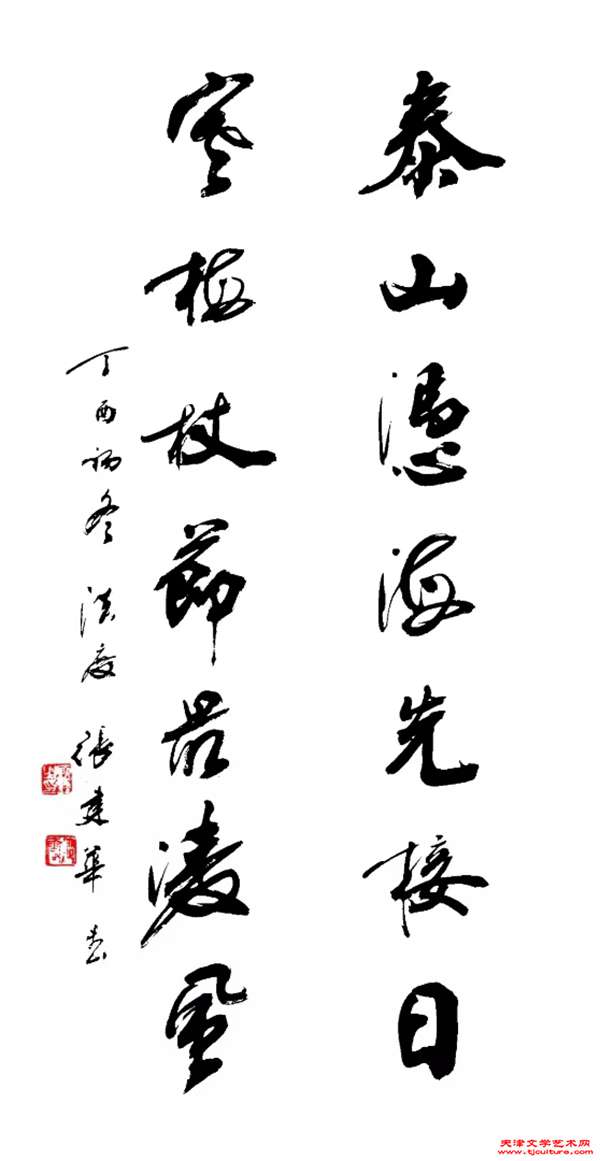 泰山憑海先接日
寒梅杖節最凌風
丁酉初冬 洪度 張建華 書
天津文学艺术网
www.tjculture.com